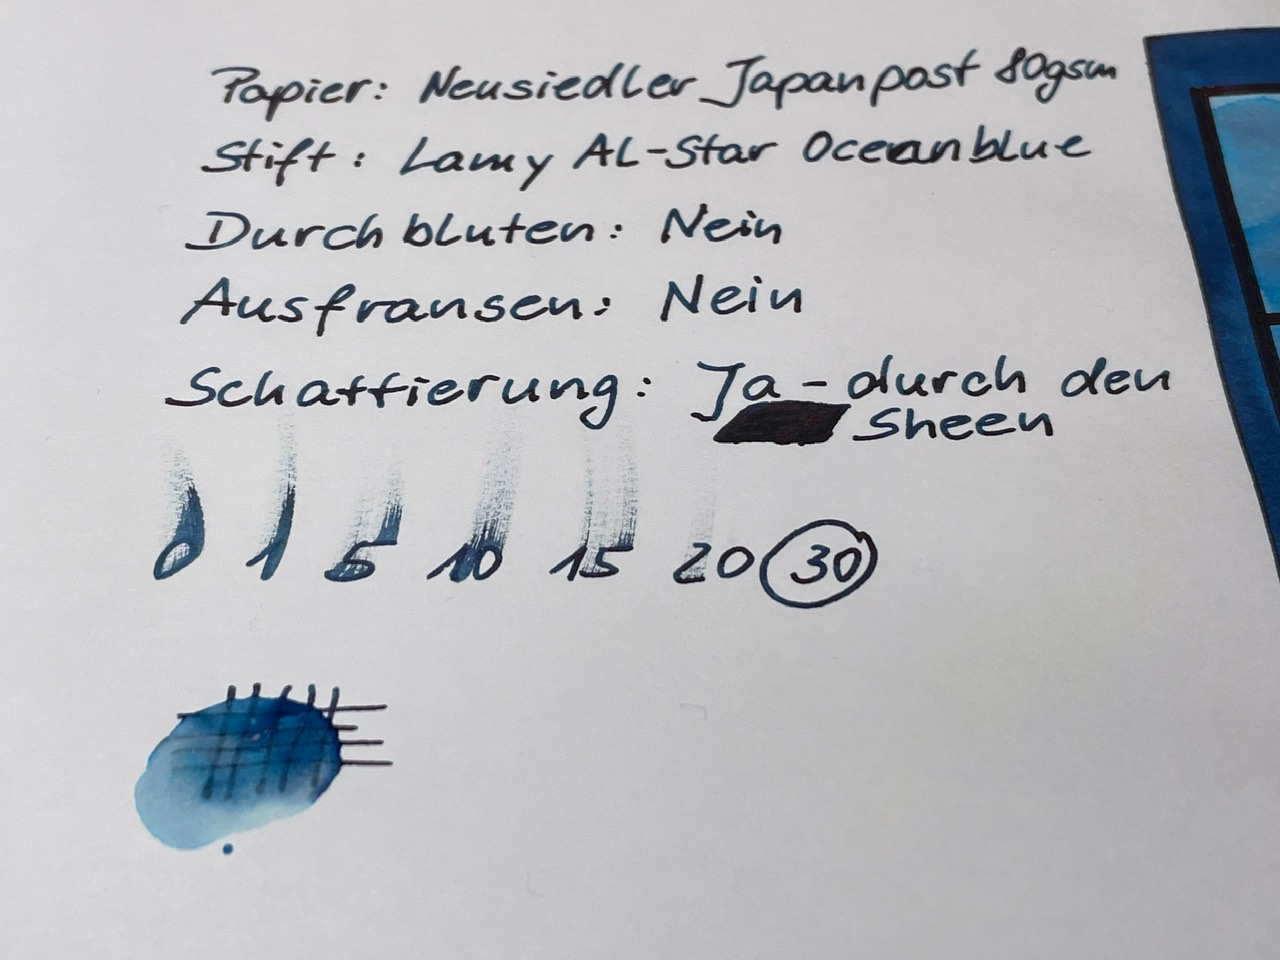 Papier: Neusiedler Japanpost 80gsm
Stift: Lamy AL-Star Oceanblue
Durchbluten: Nein
Ausfransen: Nein
Schattierung: Ja - durch den
Sheen
0 1 5 10 15 20 30